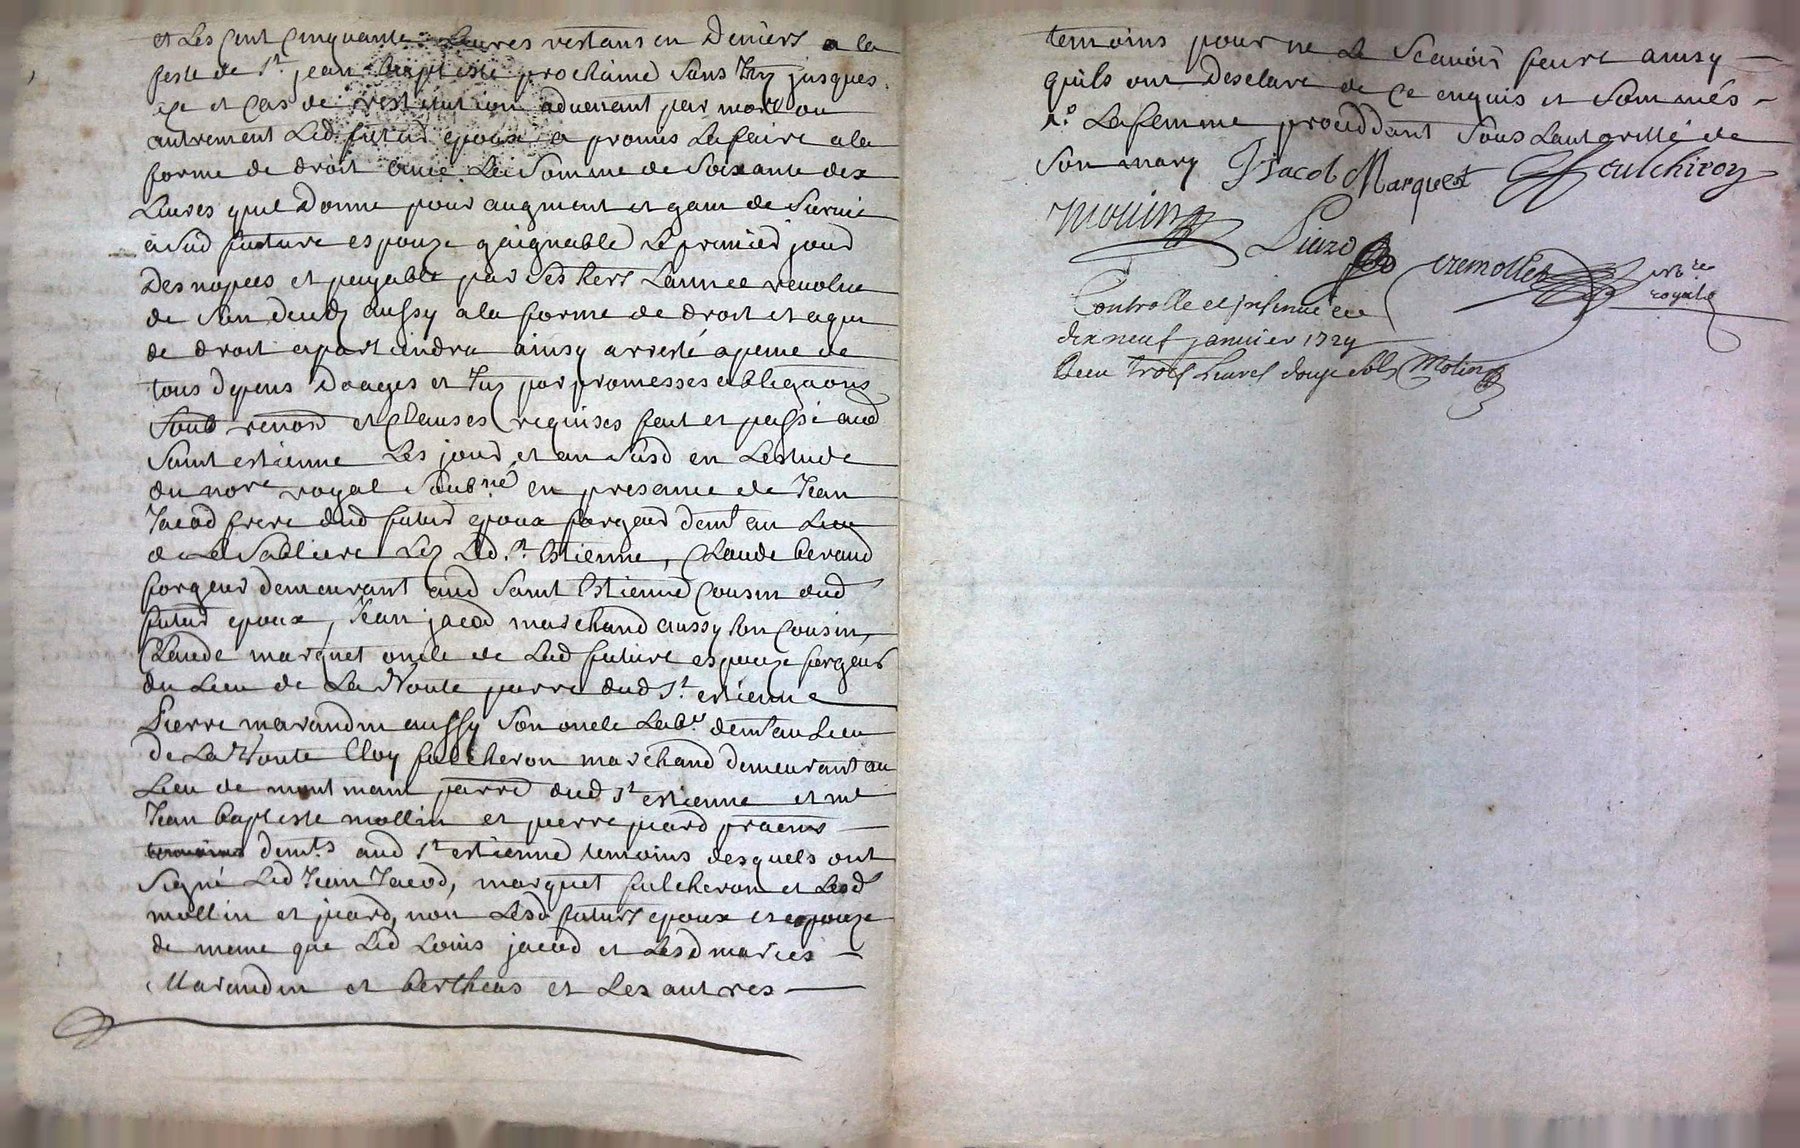 et Les cent cinquante Liures restans en Deniers a la
feste de st jean baptiste prochaine sans Inz jusques
ce et cas de restitution aduenant par mort ou
autrement Led. futur epoux a promis La faire a la
forme de droit auec La Somme de Soixante dix
Liures quil Donne pour augment et gain de Suruie
a sad future espouze gaignable Le premier jour
Des nopces et payable par Ses hers Lannee reuolue
de Son deuds aussy a la forme de droit et a qui
de droit apartiendra ainsy arresté a peine de
tous depens Doages et Inz par promesses obligaons
Soub renons et Clauses requises fait et passé aud
Saint estienne Les jour et an Susd en Lestude
du nore royal Soubné en presance de Jean
Jacod frere dud futur epoux forgeur demt au Lieu
de La Sabliere Lez Led. st Estienne, Claude beraud
forgeur demeurant aud Saint Estienne Cousin dud
futur epoux, Jean jacod marchand aussy Son Cousin,
Claude marquet oncle de Lad future espouze forgeur
du Lieu de La Voute parre dud st estienne
Pierre marandin aussy Son oncle Labr demt au Lieu
de La Voute Eloy fulcheron marchand demeurant au
Lieu de mont parre dud st estienne et me
Jean baptiste mollin et pierre picard praens
demts aud st estienne temoins desquels ont
Signé Led Jean Jacod, marquet fulcheron et Lesd
mollin et picard, non Lesd futurs epoux et epouze
de meme que Led Louis jacod et Lesd mariés
Marandin et bertheas et Les autres
temoins pour ne Le Scauoir feure ainsy
quils ont desclaré de ce enquis et Sommés
La femme proceddant Sous Lautorité de
Son mary J Jacod Marquet fulchiron
Mollin Picard tremollet nore
royal
Controllé et jnsinué ce
dix neuf januier 1729
Receu trois Liures douze sols Molin